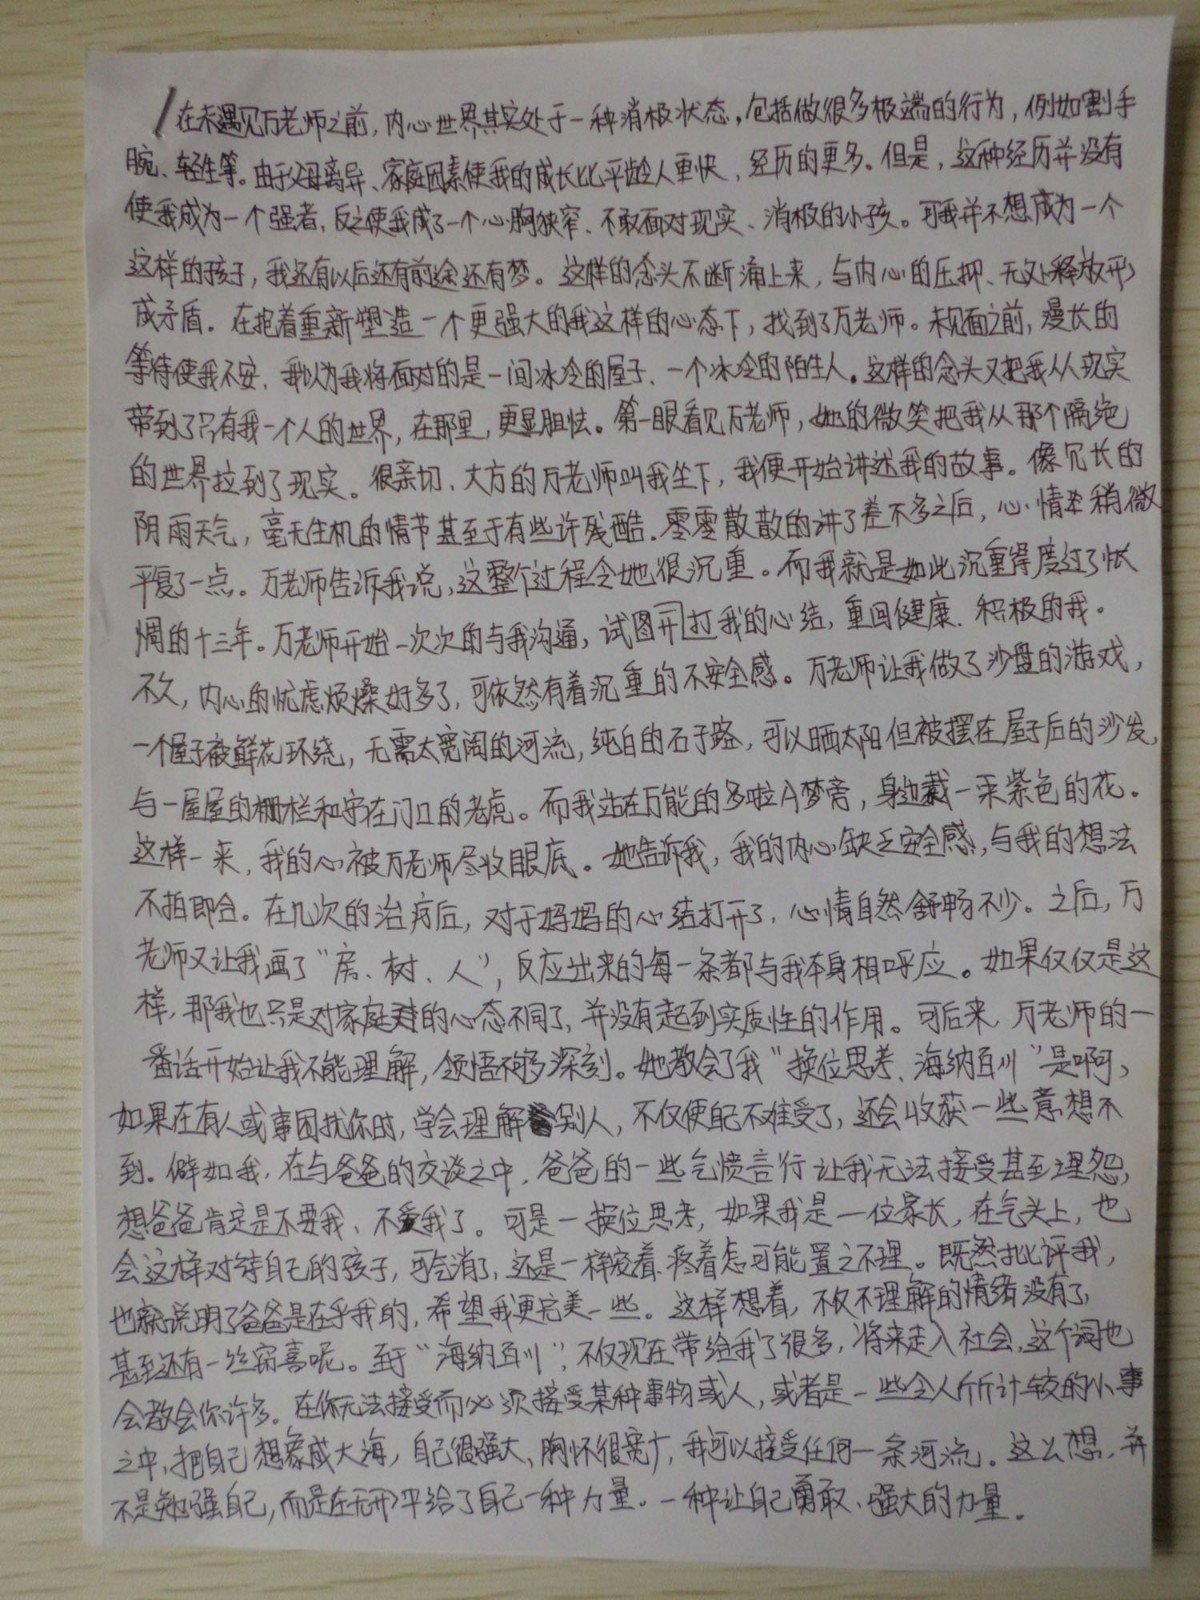 在未遇见万老师之前，内心世界其实处于一种消极状态，包括做很多极端的行为，例如割手
腕、轻生等。由于父母离异、家庭因素使我的成长比平龄人更快，经历的更多。但是，这种经历并没有
使我成为一个强者，反之使我成了一个心胸狭窄、不敢面对现实、消极的小孩。可我并不想成为一个
这样的孩子，我还有以后还有前途还有梦。这样的念头不断涌上来，与内心的压抑、无处释放形
成矛盾。在抱着重新塑造一个更强大的我这样的心态下，找到了万老师。未见面之前，漫长的
等待使我不安，我以为我将面对的是一间冰冷的屋子、一个冰冷的陌生人。这样的念头又把我从现实
带到了只有我一个人的世界，在那里，更显胆怯。第一眼看见万老师，她的微笑把我从那个隔绝
的世界拉到了现实。很亲切、大方的万老师叫我坐下，我便开始讲述我的故事。像冗长的
阴雨天气，毫无生机的情节甚至于有些许残酷。零零散散的讲了差不多之后，心情稍微
平复了一点。万老师告诉我说，这整个过程令她很沉重。而我就是如此沉重得度过了怅
惆的十三年。万老师开始一次次的与我沟通，试图开打我的心结，重回健康、积极的我。
不久，内心的忧虑烦燥好多了，可依然有着沉重的不安全感。万老师让我做了沙盘的游戏，
一个屋子被鲜花环绕，无需太宽阔的河流，纯白的石子路，可以晒太阳但被摆在屋子后的沙发，
与一屋屋的栅栏和守在门口的老虎。而我站在万能的多啦A梦旁，身边栽一朵紫色的花。
这样一来，我的心被万老师尽收眼底。她告诉我，我的内心缺乏安全感，与我的想法
不拍即合。在几次的治疗后，对于妈妈的心结打开了，心情自然舒畅不少。之后，万
老师又让我画了“房、树、人”，反应出来的每一条都与我本身相呼应。如果仅仅是这
样，那我也只是对家庭的心态不同了，并没有起到实质性的作用。可后来，万老师的一
番话开始让我不能理解，领悟不够深刻。她教会了我“换位思考、海纳百川”是啊，
如果在有人或事困扰你时，学会理解别人，不仅使自己不难受了，还会收获一些意想不
到。僻如我，在与爸爸的交谈之中，爸爸的一些气愤言行让我无法接受甚至埋怨，
想爸爸肯定是不要我、不爱我了。可是一换位思考，如果我是一位家长，在气头上，也
会这样对待自己的孩子，可气消了，还是一样宠着、疼着怎可能置之不理。既然批评我，
也就说明了爸爸是在乎我的，希望我更完美一些。这样想着，不仅不理解的情绪没有了，
甚至还有一丝窃喜呢。至于“海纳百川”，不仅现在带给我了很多，将来走入社会，这个词也
会教会你许多。在你无法接受而必须接受某种事物或人，或者是一些令人斤斤计较的小事
之中，把自己想象成大海，自己很强大、胸怀很宽广，我可以接受任何一条河流。这么想，并
不是勉强自己，而是在无形之中给了自己一种力量。一种让自己勇敢、强大的力量。